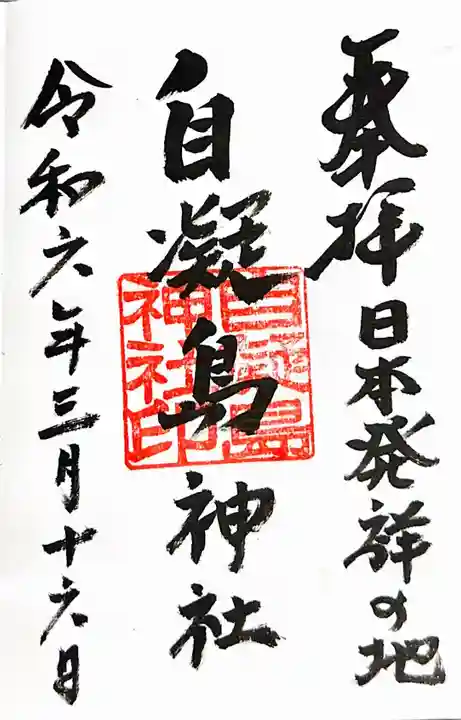 奉拝 日本発祥の地
自凝島神社
自凝島
神社印
令和六年三月十六日